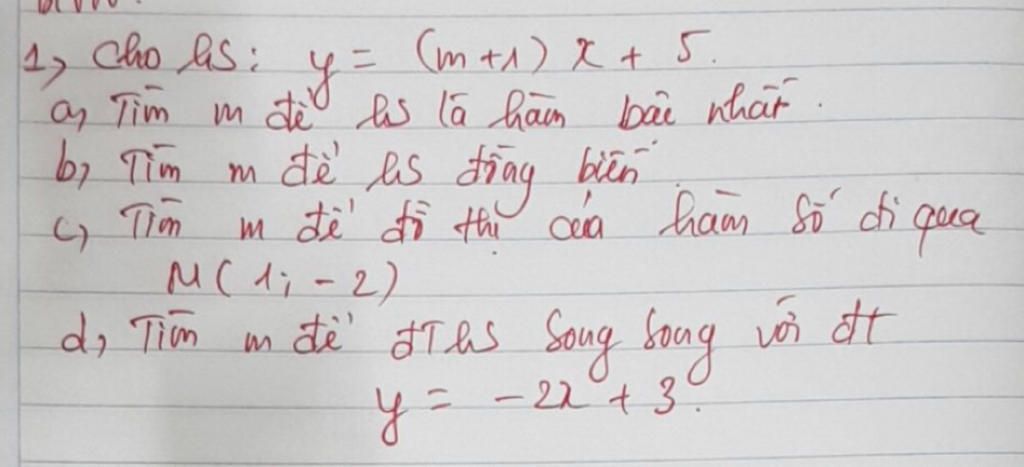 1, Cho hs: y = (m+1) x + 5.
a, Tìm m để hs là hàm bậc nhất.
b, Tìm m để hs đồng biến.
c, Tìm m để đồ thị của hàm số đi qua
M(1; -2)
d, Tìm m để ĐTHS song song với đt
y = -2x + 3.